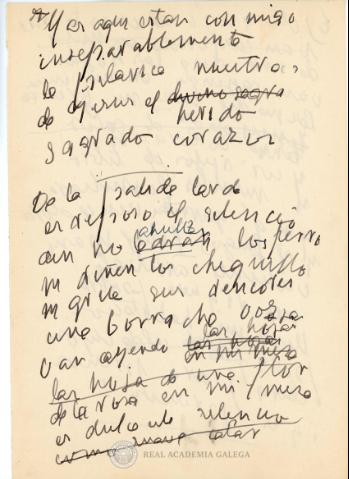 Y es aqui estan conmigo
inseparablemente
nuestra
de el divino sagra herido
sagrado corazon
De la tarde
es reposo el silencio
aun no ladran ahulla los perro
ni riñen los chiquillo
ni grita sus rencores
una borracha voz
van cayendo las hojas las hojas
en mi mesa
las hoja de una flor
de la rosa en mi mesa
es dulce silencio
como
REAL ACADEMIA GALEGA